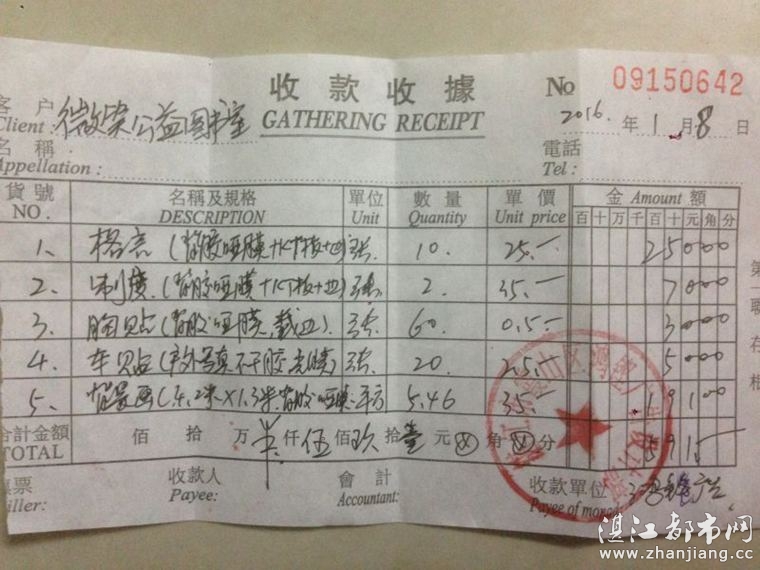 收款收據 No 09150642
客户 微柴公益圖书室 GATHERING RECEIPT 2016. 年 1 月 8 日
Client:
名稱 電話
Appellation: Tel:
貨號 名稱及規格 單位 數量 單價 金 Amount 額
NO. DESCRIPTION Unit Quantity Unit price 百十万千百十元角分
1. (背胶哑膜+KT板+边) 张 10. 25.- 25000
2. 制度 (背胶哑膜+KT板+边) 张 2 35.- 7000
3. 胸贴 (背胶哑膜 裁边) 张 60. 0.5.- 3000
4. 车贴 (户外写真不干胶 ) 张 20 2.5.- 5000
5. 背景画 (4.2米×1.3米背胶哑膜 平方 5.46 35.- 19100
合計金額 佰 拾 万 仟 伍 佰 玖 拾 壹 元 角 分 5915
TOTAL
填票 收款人 會計 收款單位
Filler: Payee: Accountant: Payee of money
第一联存根
湛江都市网
www.zhanjiang.cc